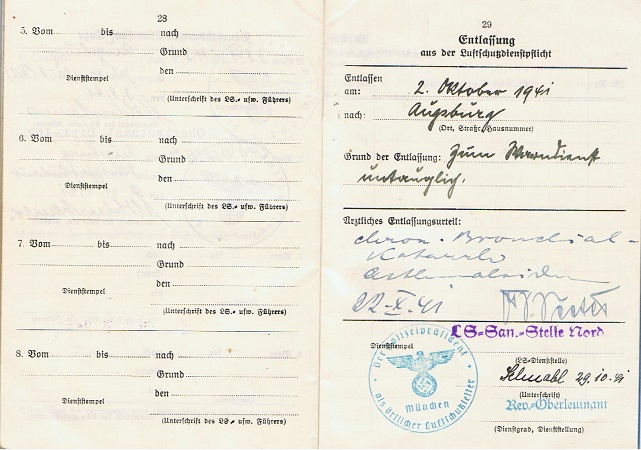 28
5. Vom bis nach
Grund
Dienststempel den
(Unterschrift des LS.- usw. Führers)
6. Vom bis nach
Grund
Dienststempel den
(Unterschrift des LS.- usw. Führers)
7. Vom bis nach
Grund
Dienststempel den
(Unterschrift des LS.- usw. Führers)
8. Vom bis nach
Grund
Dienststempel den
(Unterschrift des LS.- usw. Führers)
29
Entlassung
aus der Luftschutzdienstpflicht
Entlassen
am: 2. Oktober 1941
nach: Augsburg
(Ort, Straße, Hausnummer)
Grund der Entlassung: Zum Warndienst
untauglich.
Ärztliches Entlassungsurteil:
chron. Bronchial-
Katarrh
Asthmaleiden
22-X.41
LS-San.-Stelle Nord
Dienststempel
(LS-Dienststelle)
29.10.41
(Unterschrift)
Rev.-Oberleutnant
(Dienstgrad, Dienststellung)
Der Polizeipräsident
München
als örtlicher Luftschutzleiter